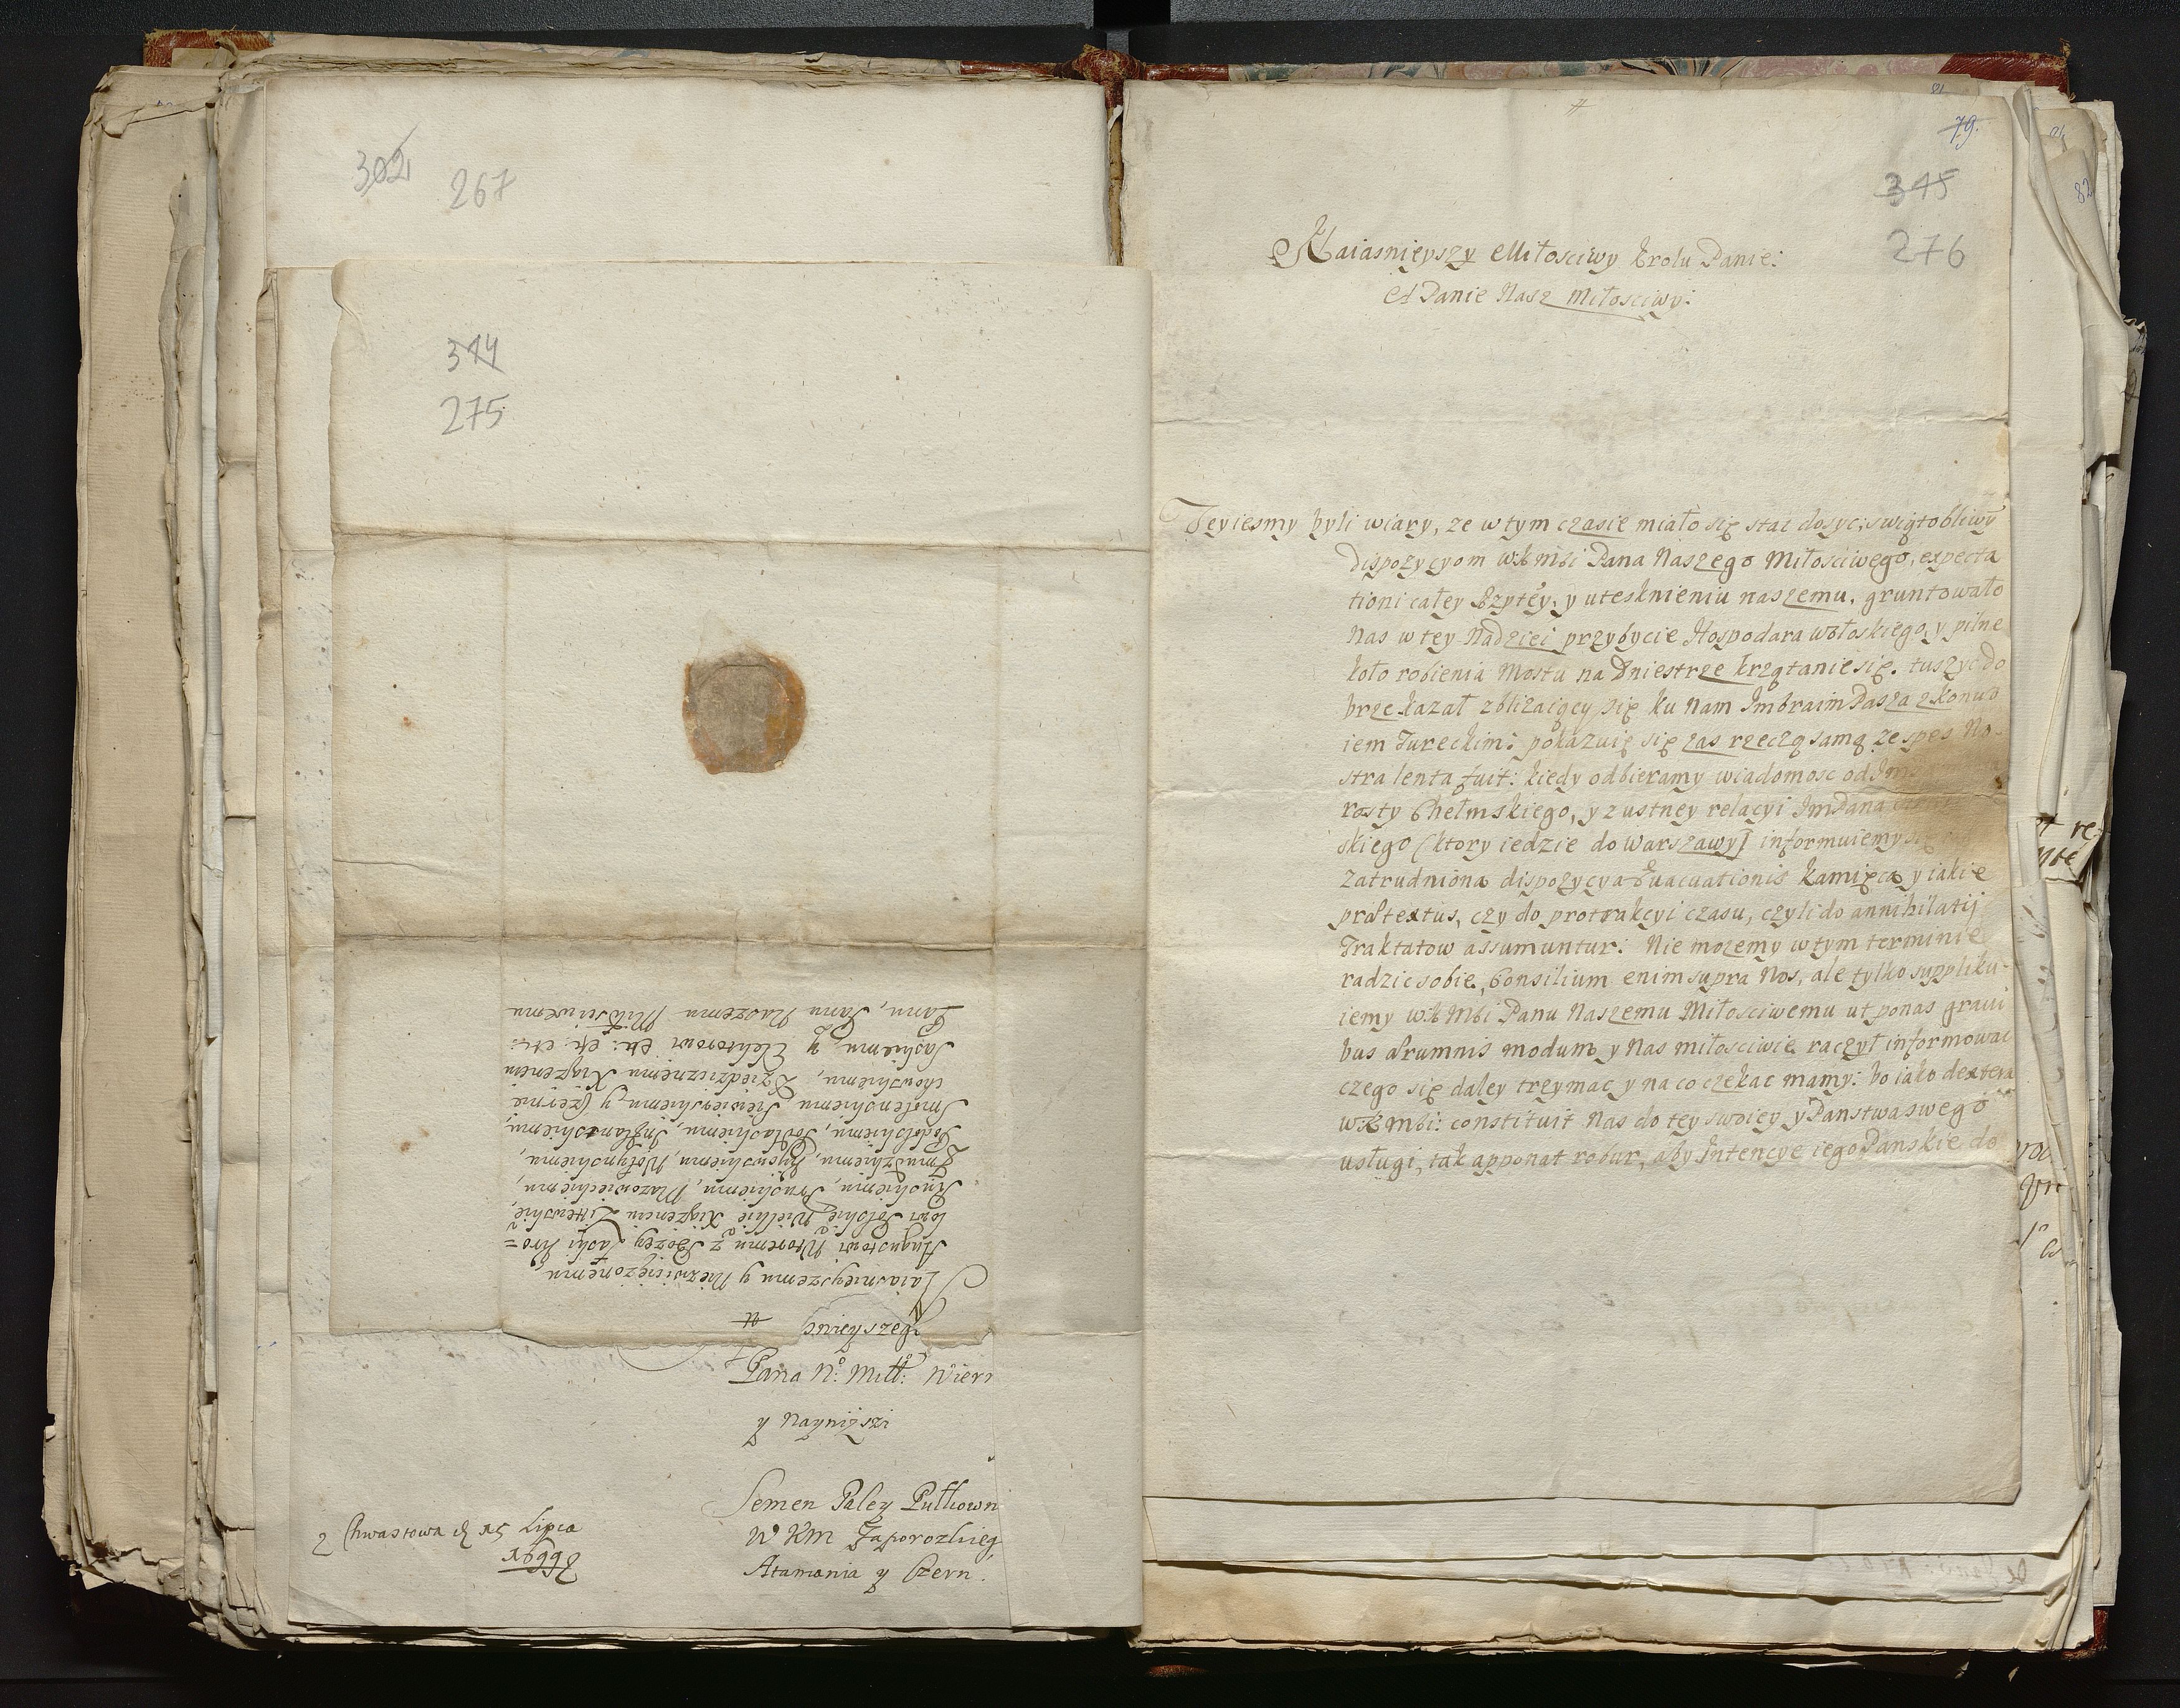 302 267
344
275
Panu, Panu Naszemu Miłościwemu
Saskiemu y Elektorowi etc: etc: etc:
chowskiemu, Dziedzicznemu Xiążęciu
Smolenskiemu Siewierskiemu y Czernie
Podolskiemu, Podlaskiemu, Inflantskiemu,
Zmudzkiemu, Kijowskiemu, Wołynskiemu,
Ruskiemu, Pruskiemu, Mazowieckiemu,
lowi Polskie Wielkie Xiążęciu Littewskie
Augustowi Wtoremu z Bożey Łaski Kro=
Naiasnieyszemu y Niezwiciężonemu
Pana No: Miłł:
y Nayniższi
Semen Paley Pułkown
W KM Zaporozkieg
Atamania y Czern.
z Chwastowa d 15 Lipca
1699
81
79.
345
276
Naiasnięyszy Miłosciwy Krolu Panie:
A Panie Nasz Miłosciwy:
Teyiesmy byli wiary, ze w tym czasie miało się stac dosyc swiątobliwÿ
dispozycyom WKMsci Pana Naszego Miłosciwego, expecta
tioni całey Rzptęy, y utesknieniu naszemu, gruntowało
Nas w tey Nadziei przybycie Hospodara Wołoskiego, y pilne
koło robienia Mostu na Dniestrze krzątanie się. tuszyc do
brze kazał zbliżaiący się ku Nam Imbraim Pasza z Konwo
iem Tureckim: pokazuię się zas rzeczą samą ze spes No
stra lenta fuit: kiedy odbieramy wiadomosc od
rosty Chełmskiego, y z ustney relacyi Jm Pana
skiego (ktory iedzie do Warszawy) informuiemy
zatrudniona dispozycya Evacuationis Kamięca y iakie
prætextus, czy do protrakcyi czasu, czyli do annihilatij
Traktatow assumuntur: Nie mozemy w tym terminie
radzic sobie, Consilium enim supra Nos, ale tylko suppliku-
iemy WKMsci Panu Naszemu Miłosciwemu ut ponas gravi
bus ærumnis modum y Nas miłosciwie raczył informowac
czego się daley trzymac y na co czekac mamy: bo iako dextera
WKMsci: constituit Nas do tey swoiey y Panstwa swego
usługi, tak apponat robur, aby Intencye iego Panskie do